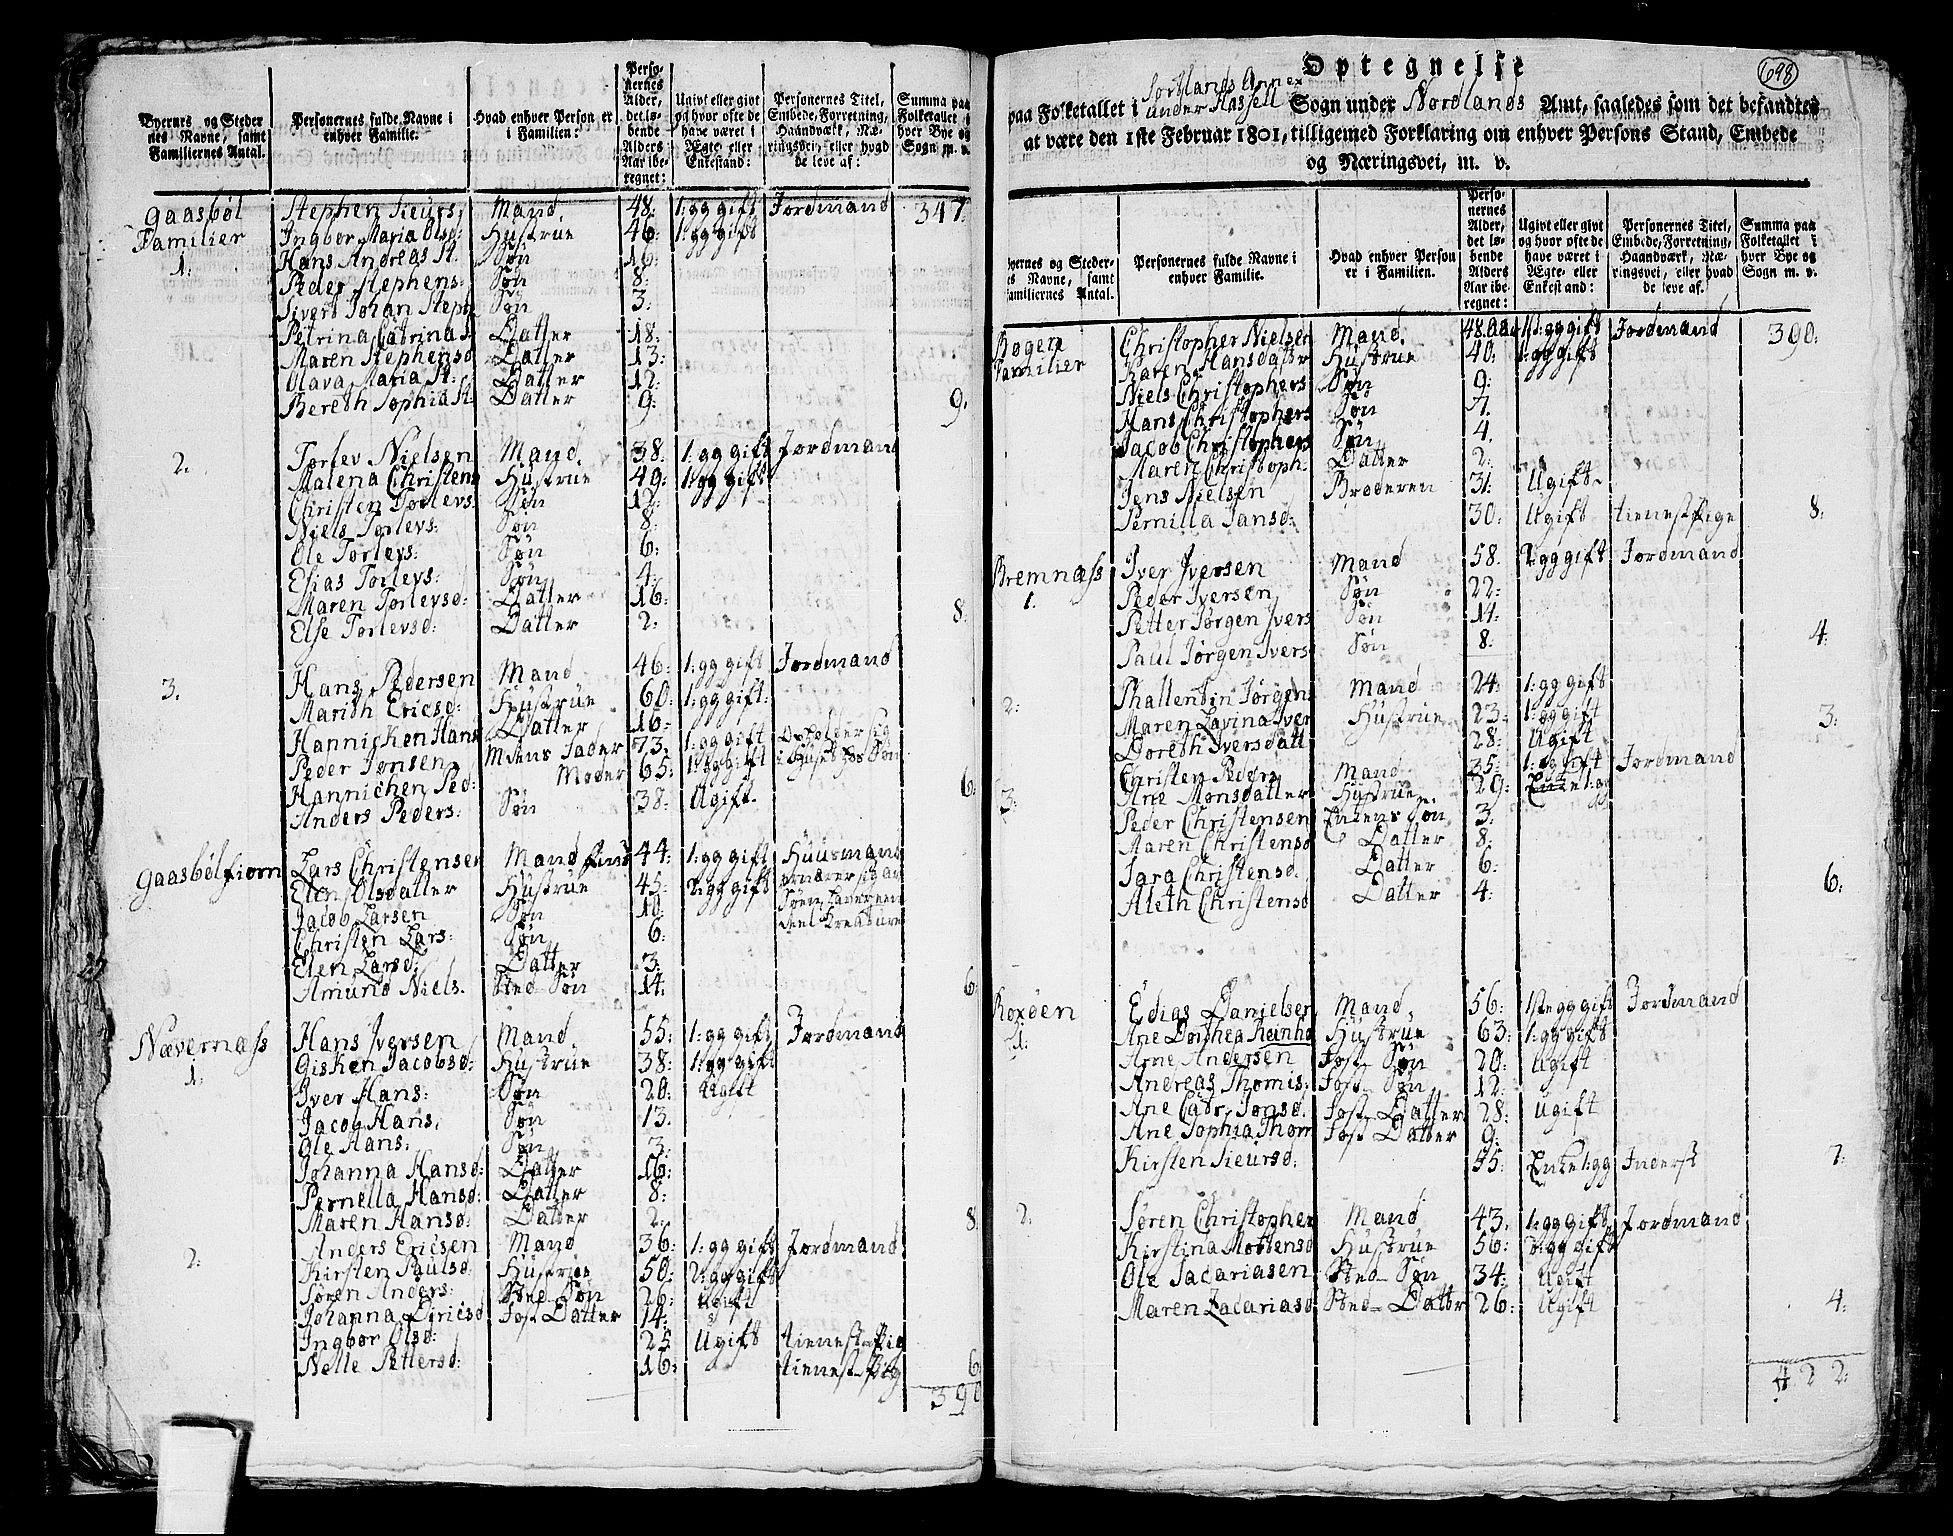 Byernes og Steder
nes Navne, samt
Familiernes Antal.
Personernes fulde Navne i
enhver Familie.
Hvad enhver Person er
i Familien:
Perso-
nernes
Alder,
det lø-
bende
Alders
Aar ibe-
regnet:
Ugivt eller givt
og hvor ofte de
have været i
Ægte- eller
Enkestand:
Personernes Titel,
Embede, Forretning,
Haandværk, Næ-
ringsvei, eller hvad
de leve af:
Summa paa
Folketallet i
hver Bye og
Sogn m. v.
Gaasbøl Stephen Sieurs: Mand. 48: 1: gg gift Jordmand 347.
Familier Ingbor Maria Olsd: Hustrue 46: 1: gg gift
1: Hans Andreas St. Søn 16:
Peder Stephens: Søn 8:
Sivert Johan Steph Søn 3:
Petrina Catrina S. Datter 18:
Maren Stephensd Datter 13:
Olava Maria St: Datter 12:
Bereth Sophia St: Datter 9: 9.
2. Torlev Nielsen Mand 38: 1: gg gift Jordmand
Malena Christens Hustrue 49: 1: gg gift
Christen Torlevs: Søn 12:
Niels Torlevs: Søn 8:
Ole Torlevs: Søn 6:
Elias Torlevs: Søn 4:
Maren Torlevsd: Datter 16:
Else Torlevsd: Datter 2: 8:
3. Hans Pedersen Mand 46: 1: gg gift Jordmand
Marith Ericsd: Hustrue 60: 1: gg gift:
Hannichen Hans Datter 16:
Peder Jonsen Mans Fader 73: 1: gg gift Opholder sig
Hannichen Ped: Moder 65: 1: gg gift i Huset hos Søn
Anders Peders: Søn 38: Ugift. 6:
Gaasbølfiorn Lars Christensen Mand 44: 1: gg gift Huusmand
Elen Olsdatter Hustrue 45: 2: gg gift ernærer sig av
Jacob Larsen Søn 10: Søen
Christen Lars: Søn 6: deel Kreature
Elen Larsd: Datter 3:
Amund Niels. Sted-Søn 14: 6:
Nævernæss Hans Iversen Mand 55: 1: gg gift Jordmand
1: Gisken Jacobsd: Hustrue 38: 1: gg gift
Iver Hans: Søn 20: Ugift
Jacog Hans: Søn 13.
Ole Hans: Søn 3:
Johanna Hansd: Datter 16:
Pernella Hansd: Datter 8:
Maren Hansd: Datter 2: 8:
2: Anders Ericsen Mand 36: 1: gg gift Jordmand
Kirsten Paulsd Hustrue 50: 2: gg gift
Søren Anders: Sted-Søn 26: Ugift
Johanna Ericsd Fost Datter 14:
Ingbor Olsd: 25 Ugift tienestepig
Nelle Pettersd: 16: tienest pig 6
390
698
Optegnelse
paa Folketallet i Sortlands Annex under Hassell Sogn under Nordlands Amt, saaledes som det befandtes
at være den 1ste Februar 1801, tilligemed Forklaring om enhver Persons Stand, Embede
og Næringsvei, m. v.
Byernes og Steder-
nes Navne, samt
Familiernes Antal.
Personernes fulde Navne i
enhver Familie.
Hvad enhver Person
er i Familien.
Perso-
nernes
Alder,
det lø-
bende
Alders
Aar ibe-
regnet:
Ugivt eller givt
og hvor ofte de
have været i
Ægte- eller
Enkestand:
Personernes Titel,
Embede, Forretning,
Haandværk, Næ-
ringsvei, eller hvad
de leve af.
Summa paa
Folketallet i
hver Bye og
Sogn m. v.
Bogen Christopher Nielsen Mand. 48 1: gg gift Jordmand 390:
Familier Karen Hansdatter Hustrue 40: 1: gg gift
Niels Christophers Søn 9:
Hans Christophers Søn 7.
Jacob Christophers Søn 4.
Maren Christoph: Datter 2:
Jens Nielsen Broderen 31: Ugift.
Pernilla Jansd: 30: Ugift tienestpige 8:
Bremnæss Iver Iversen Mand 58. 2: gg gift Jordmand
1. Peder Iversen Søn 22:
Petter Jørgen Ivers Søn 14:
Paul Jørgen Ivers Søn 8. 4:
2: Phallentin Jørgen Mand 24: 1: gg gift
Maren Lavina Iver Hustrue 23: 1: gg gift
Doreth Iversdatt 28: Ugift 3:
3: Christen Peders Mand 35: 1: gg gift Jordmand
Ane Monsdatter Hustrue 29:
Peder Christensen Søn 3:
Maren Christensd Datter 8:
Sara Christensd. Datter 6:
Aleth Christensd Datter 4: 6:
Roxøen Edias Danielsen Mand, 56: 1ste gg gift Jordmand
1: Ane Dorthea Reinho Hustrue 63: 1: gg gift
Arne Andersen Fost Søn 20: Ugift
Andreas Thomis: Fost Søn 12:
Ane Catr. Jonsd. Fost Datter 28: Ugift
Ane Sophia Thom Fost Datter 9:
Kirsten Sieursd: 55: Enke 1: gg Inderst 7:
2: Søren Christopher Mand 43: 1: gg gift Jordmand
Kirstina Mortensd Hustrue 56: 2: gg gift
Ole Zacariasen Sted-Søn 34: Ugift
Maren Zacariasd Sted-Datter 26: Ugift 4:
422: